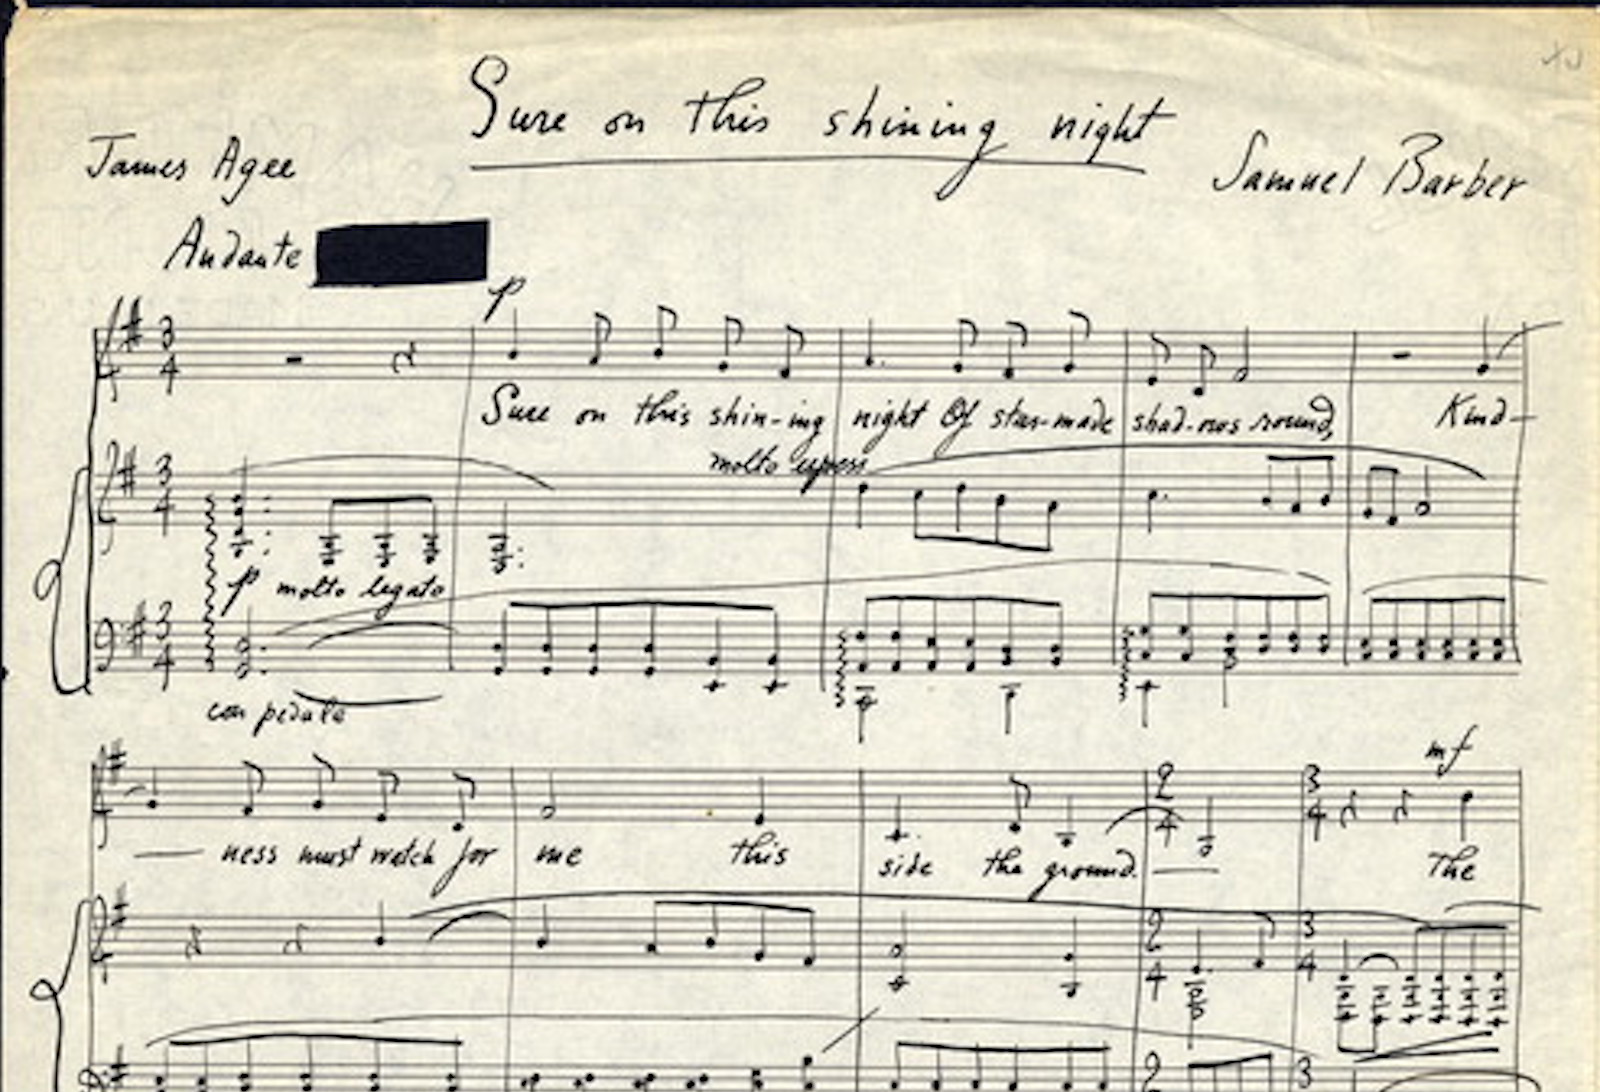 Sure on this shining night
James Agee
Samuel Barber
Andante
p
3 4
Sure on this shin-ing night Of star-made shad-ows round, Kind-
molto espress
3 4
p molto legato
3 4
con pedale
mf
2 4 3 4
— ness must watch for me this side the ground. — The
2 4 3 4
2 3